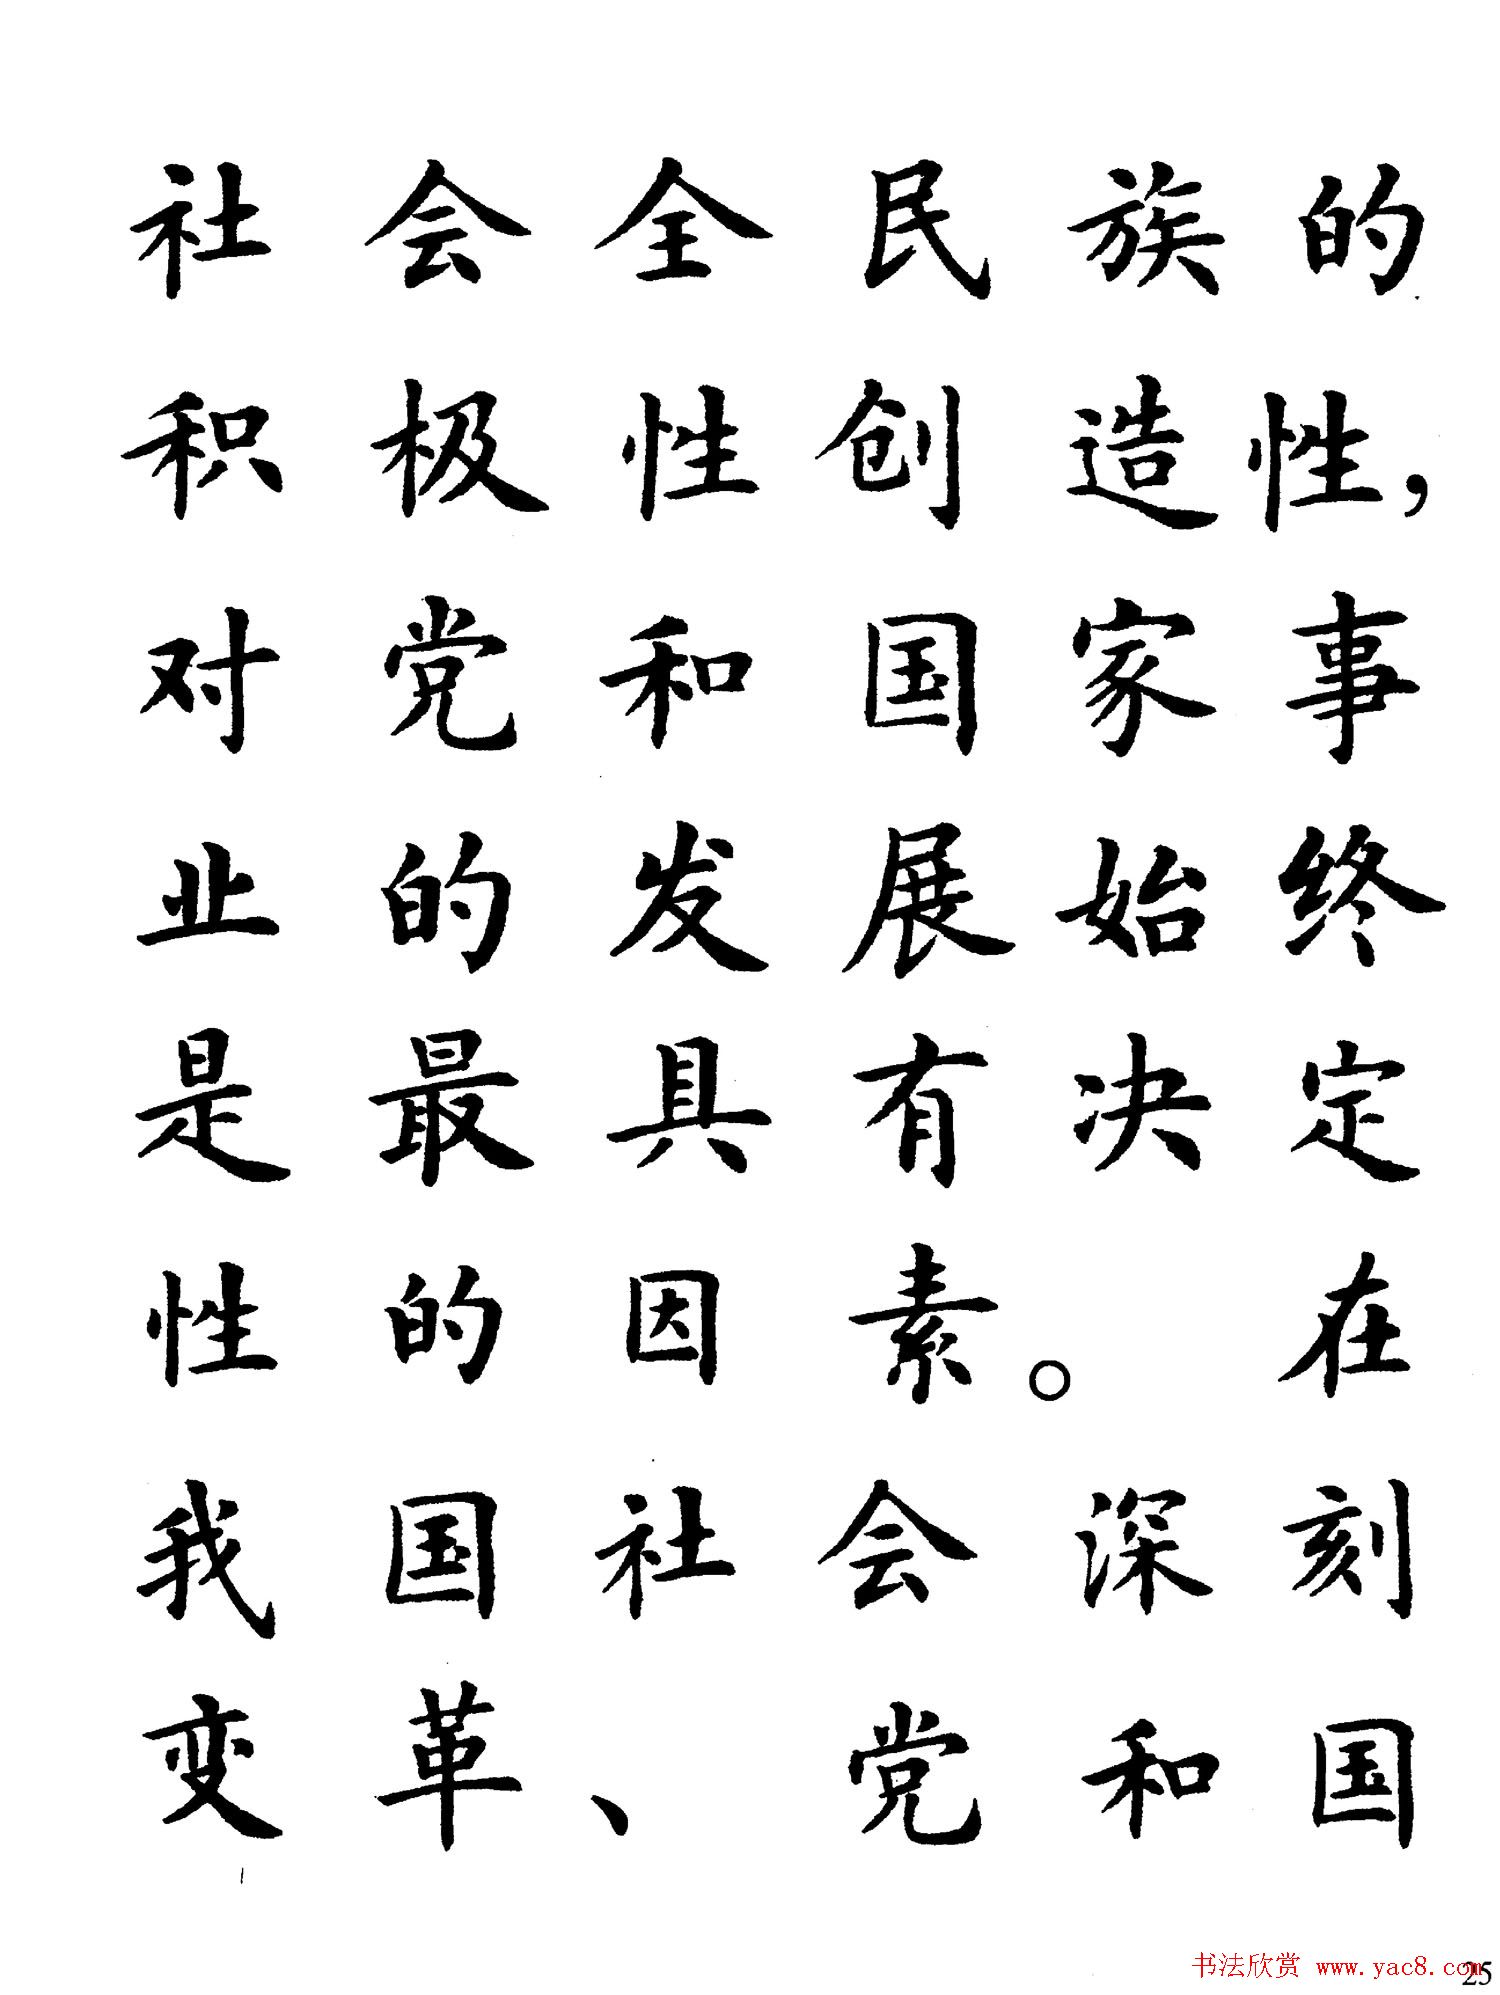 社会全民族的
积极性创造性，
对党和国家事
业的发展始终
是最具有决定
性的因素。在
我国社会深刻
变革、党和国
书法欣赏 www.yac8.com
25